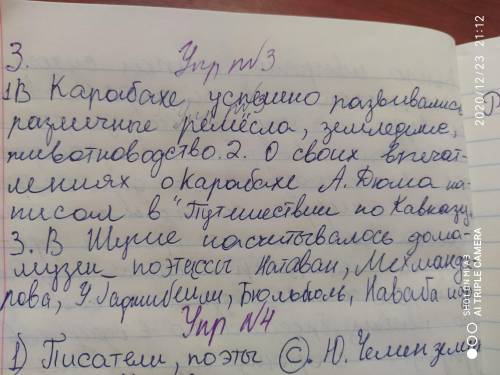 3. Упр №3
1В Карабахе, успешно развивались
различные ремёсла, земледелие,
животноводство. 2. О своих впечат-
лениях о Карабахе А. Дюма на-
писал в "Путешествии по Кавказу.
3. В Шуше насчитывалось дома,
музеи_ поэтессы Натаван, Мехманда-
рова, У. Гаджибейли, Бюльбюль, Наваба
Упр №4
1) Писатели, поэты (С). Ю. Чеменземи
2020/12/23 21:12
SHOT ON MI A3
AI TRIPLE CAMERA